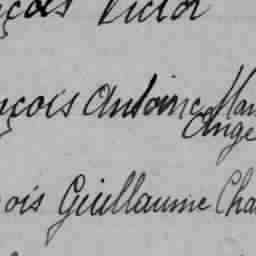 çois Victor
nçois Antoine Mar
Ange
ois Guillaume Cha